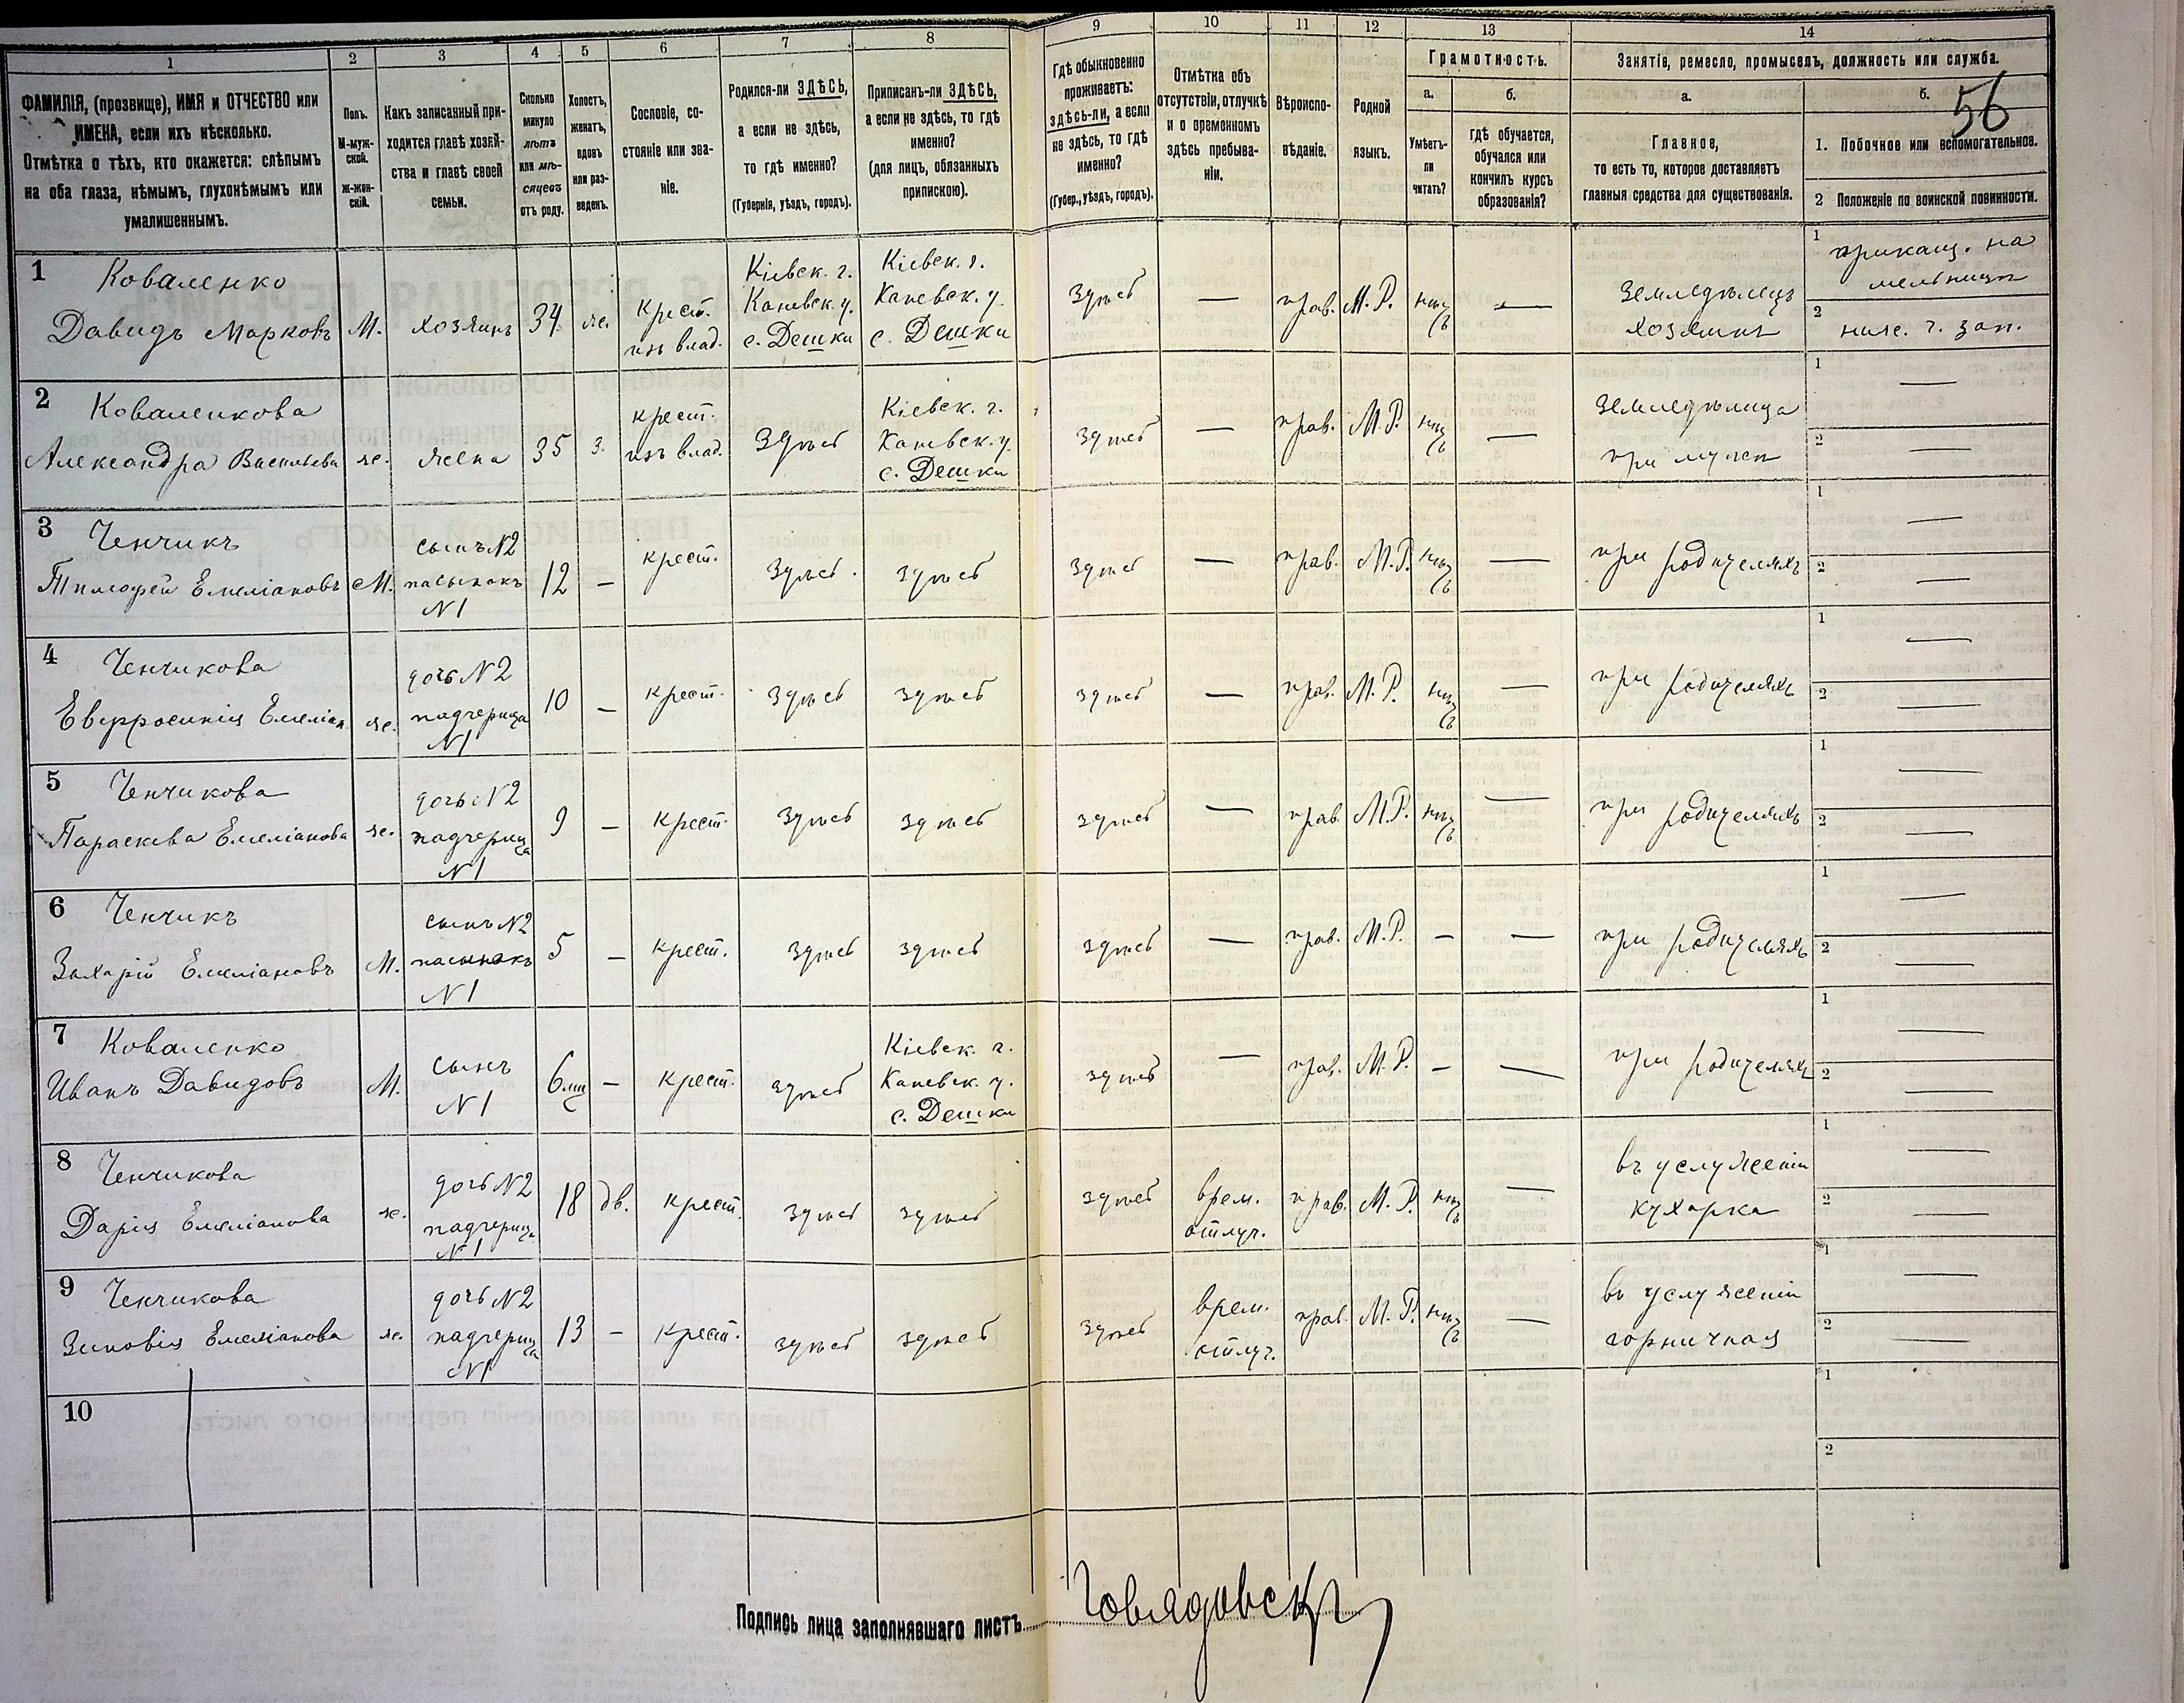 1 2 3 4 5 6 7 8 9 10 11 12 13 14
56
ФАМИЛІЯ, (прозвище), ИМЯ и ОТЧЕСТВО или
ИМЕНА, если ихъ нѣсколько.
Отмѣтка о тѣхъ, кто окажется: слѣпымъ
на оба глаза, нѣмымъ, глухонѣмымъ или
умалишеннымъ.
Полъ.
М-муж-
ской.
Ж-жен-
скій.
Какъ записанный при-
ходится главѣ хозяй-
ства и главѣ своей
семьи.
Сколько
минуло
лѣтъ
или мѣ-
сяцевъ
отъ роду.
Холостъ,
женатъ,
вдовъ
или раз-
веденъ.
Сословіе, со-
стояніе или зва-
ніе.
Родился-ли ЗДѢСЬ,
а если не здѣсь,
то гдѣ именно?
(Губернія, уѣздъ, городъ).
Приписанъ-ли ЗДѢСЬ,
а если не здѣсь, то гдѣ
именно?
(для лицъ, обязанныхъ
припискою).
Гдѣ обыкновенно
проживаетъ:
здѣсь-ли, а если
не здѣсь, то гдѣ
именно?
(Губер., уѣздъ, городъ).
Отмѣтка объ
отсутствіи, отлучкѣ
и о временномъ
здѣсь пребыва-
ніи.
Вѣроиспо-
вѣданіе.
Родной
языкъ.
Грамотность.
а.
Умѣетъ-
ли
читать?
б.
гдѣ обучается,
обучался или
кончилъ курсъ
образованія?
Занятіе, ремесло, промыселъ, должность или служба.
а.
Главное,
то есть то, которое доставляетъ
главныя средства для существованія.
б.
1. Побочное или вспомогательное.
2 Положеніе по воинской повинности.
1
Коваленко
Давидъ Марковъ
М.
хозяинъ
34
же.
Крест.
изъ влад.
Кіевск. г.
Каневск. у.
с. Дешки
Кіевск. г.
Каневск. у.
с. Дешки
Здѣсь
—
прав.
М. Р.
нѣтъ
—
Земледѣлецъ
хозяинъ
1 прикащ. на
мельницѣ
2 ниж. ч. зап.
2
Коваленкова
Александра Васильева
же.
жена
35
з.
крест.
изъ влад.
Здѣсь
Кіевск. г.
Каневск. у.
с. Дешки
здѣсь
—
прав.
М. Р.
нѣтъ
—
Земледѣлица
при мужѣ
1 —
2 —
3
Ченчикъ
Тимофей Емеліановъ
М.
сынъ N2
пасынокъ
N1
12
—
крест.
Здѣсь.
здѣсь
здѣсь
—
прав.
М. Р.
нѣтъ
—
при родителяхъ
1 —
2 —
4
Ченчикова
Евфросинія Емеліан.
же.
дочь N2
падчерица
N1
10
—
крест.
здѣсь
здѣсь
здѣсь
—
прав.
М. Р.
нѣтъ
—
при родителяхъ
1 —
2 —
5
Ченчикова
Параскева Емеліанова
же.
дочь N2
падчерица
N1
9
—
крест.
здѣсь
здѣсь
здѣсь
—
прав.
М. Р.
нѣтъ
—
при родителяхъ
1 —
2 —
6
Ченчикъ
Захарій Емеліановъ
М.
сынъ N2
пасынокъ
N1
5
—
крест.
здѣсь
здѣсь
здѣсь
—
прав.
М. Р.
—
—
при родителяхъ
1 —
2 —
7
Коваленко
Иванъ Давидовъ
М.
сынъ
N1
6 мц
—
крест.
здѣсь
Кіевск. г.
Каневск. у.
с. Дешки
здѣсь
—
прав.
М. Р.
—
—
при родителяхъ
1 —
2 —
8
Ченчикова
Дарія Емеліанова
же.
дочь N2
падчерица
N1
18
дв.
крест.
здѣсь
здѣсь
здѣсь
врем.
отлуч.
прав.
М. Р.
нѣтъ
—
въ услуженіи
кухарка
1 —
2 —
9
Ченчикова
Зиновія Емеліанова
же.
дочь N2
падчерица
N1
13
—
крест.
здѣсь
здѣсь
здѣсь
врем.
отлуч.
прав.
М. Р.
нѣтъ
—
въ услуженіи
горничная
1 —
2 —
10
1
2
Подпись лица заполнявшаго листъ